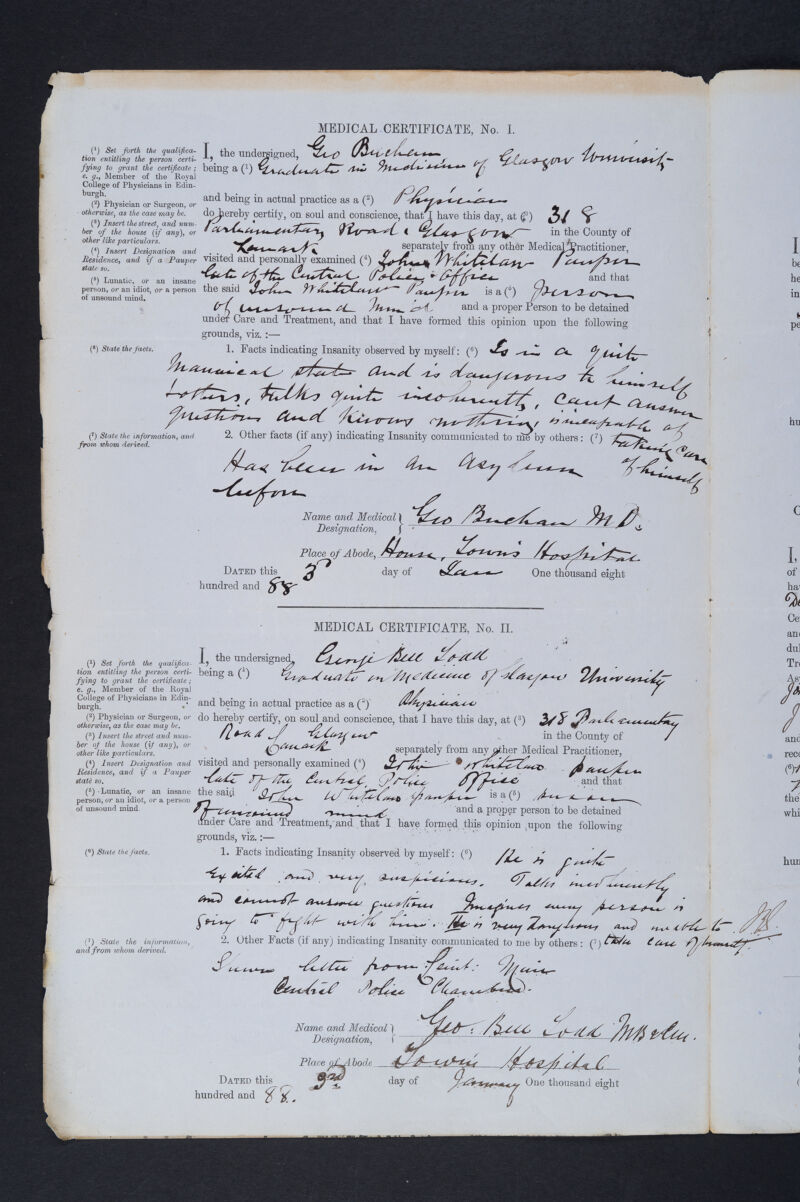 MEDICAL CERTIFICATE, No. I.
(1) Set forth the qualifica-
tion entitling the person certi-
fying to grant the certificate;
e. g., Member of the Royal
College of Physicians in Edin-
burgh.
(2) Physician or Surgeon, or
otherwise, as the case may be.
(3) Insert the street, and num-
ber of the house (if any), or
other like particulars.
(4) Insert Designation and
Residence, and if a Pauper
state so.
(5) Lunatic, or an insane
person, or an idiot, or a person
of unsound mind.
I, the undersigned, Geo Buchan
being a (1) Graduate in Medicine of Glasgow University
and being in actual practice as a (2) Physician
do hereby certify, on soul and conscience, that I have this day, at (3) 318
Parliamentary Road, Glasgow in the County of
Lanark separately from any other Medical Practitioner,
visited and personally examined (4) John Whitelaw Pauper
late of the Central Police Office and that
the said John Whitelaw Pauper is a (5) person
of unsound mind and a proper Person to be detained
under Care and Treatment, and that I have formed this opinion upon the following
grounds, viz. :—
(6) State the facts.
1. Facts indicating Insanity observed by myself: (6) Is in a quite
Maniacal state and is dangerous to himself
& others, talks quite incoherently, cant answer
questions and knows nothing, is incapable of
taking care
of himself
(7) State the information, and
from whom derived.
2. Other facts (if any) indicating Insanity communicated to me by others: (7)
Has been in an Asylum
before
Name and Medical
Designation, Geo Buchan M D.
Place of Abode, House, Town's Hospital
DATED this 3rd day of Jan One thousand eight
hundred and 88
MEDICAL CERTIFICATE, No. II.
(1) Set forth the qualifica-
tion entitling the person certi-
fying to grant the certificate;
e. g., Member of the Royal
College of Physicians in Edin-
burgh.
(2) Physician or Surgeon, or
otherwise, as the case may be.
(3) Insert the street and num-
ber of the house (if any), or
other like particulars.
(4) Insert Designation and
Residence, and if a Pauper
state so.
(5) Lunatic, or an insane
person, or an idiot, or a person
of unsound mind.
I, the undersigned, George Bell Todd
being a (1) Graduate in Medicine of Glasgow University
and being in actual practice as a (2) Physician
do hereby certify, on soul and conscience, that I have this day, at (3) 318 Parliamentary
Road Glasgow in the County of
Lanark separately from any other Medical Practitioner,
visited and personally examined (4) John Whitelaw pauper
late of the Central Police Office and that
the said John Whitelaw pauper is a (5) person
of unsound mind and a proper person to be detained
under Care and Treatment, and that I have formed this opinion upon the following
grounds, viz. :—
(6) State the facts.
1. Facts indicating Insanity observed by myself: (6) He is quite
excited and very suspicious. Talks incoherently
and cannot answer questions Imagines every person is
going to fight with him. He is very dangerous and unable to
take care of himself.
(7) State the information,
and from whom derived.
2. Other Facts (if any) indicating Insanity communicated to me by others: (7)
letter from Lieut: Muir
Central Police Chambers.
Name and Medical
Designation, Geo: Bell Todd MB & CM.
Place of Abode Town's Hospital
DATED this 3rd day of January One thousand eight
hundred and 88.